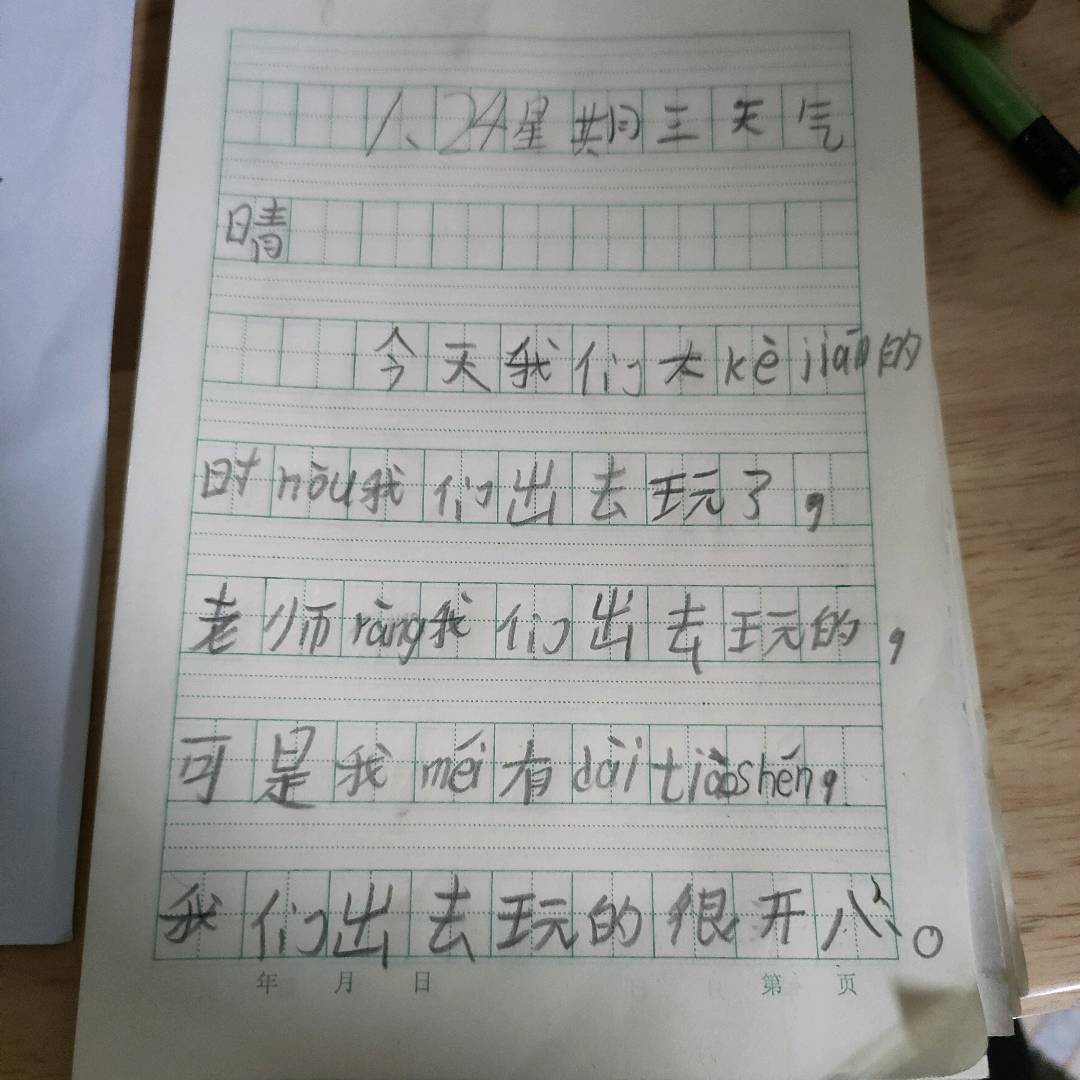 1、24星期三天气
晴
今天我们大kè jiān的
时hòu我们出去玩了，
老师ràng我们出去玩的，
可是我méi有dài tiàoshéng，
我们出去玩的很开心。
年 月 日 第 页